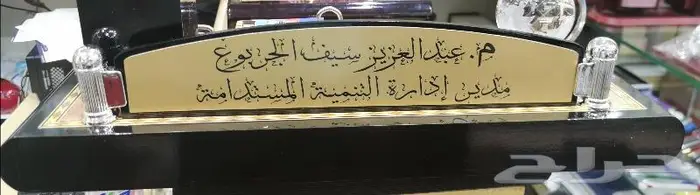 م. عبدالعزيز سيف الجربوع
مدير إدارة التنمية المستدامة
حراج